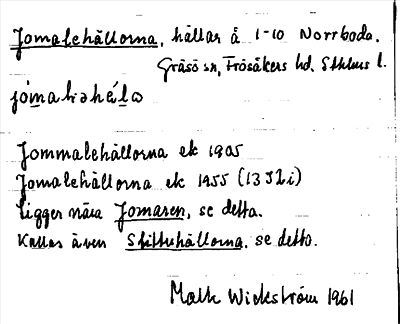 Jomalehällorna, hällar å 1-10 Norrboda.
Gräsö sn, Frösåkers hd. Sthlms l.
jómaləhä́la
Jommalehällorna ek 1905
Jomalehällorna ek 1955 (13 I 2 i)
Ligger nära Jomaren, se detta.
Kallas även Skittuhällorna, se detta.
Mats Wickström 1961